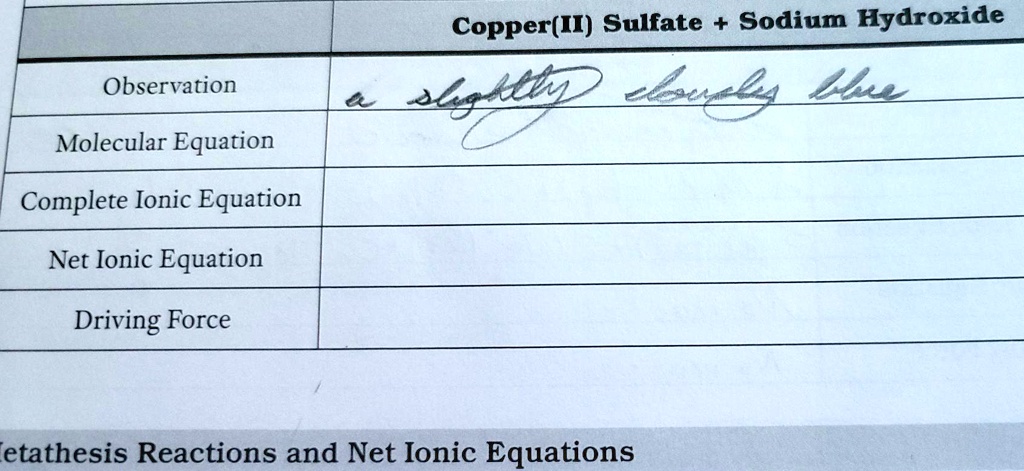 Copper(II) Sulfate + Sodium Hydroxide
Observation
a slightly cloudy blue
Molecular Equation
Complete Ionic Equation
Net Ionic Equation
Driving Force
etathesis Reactions and Net Ionic Equations